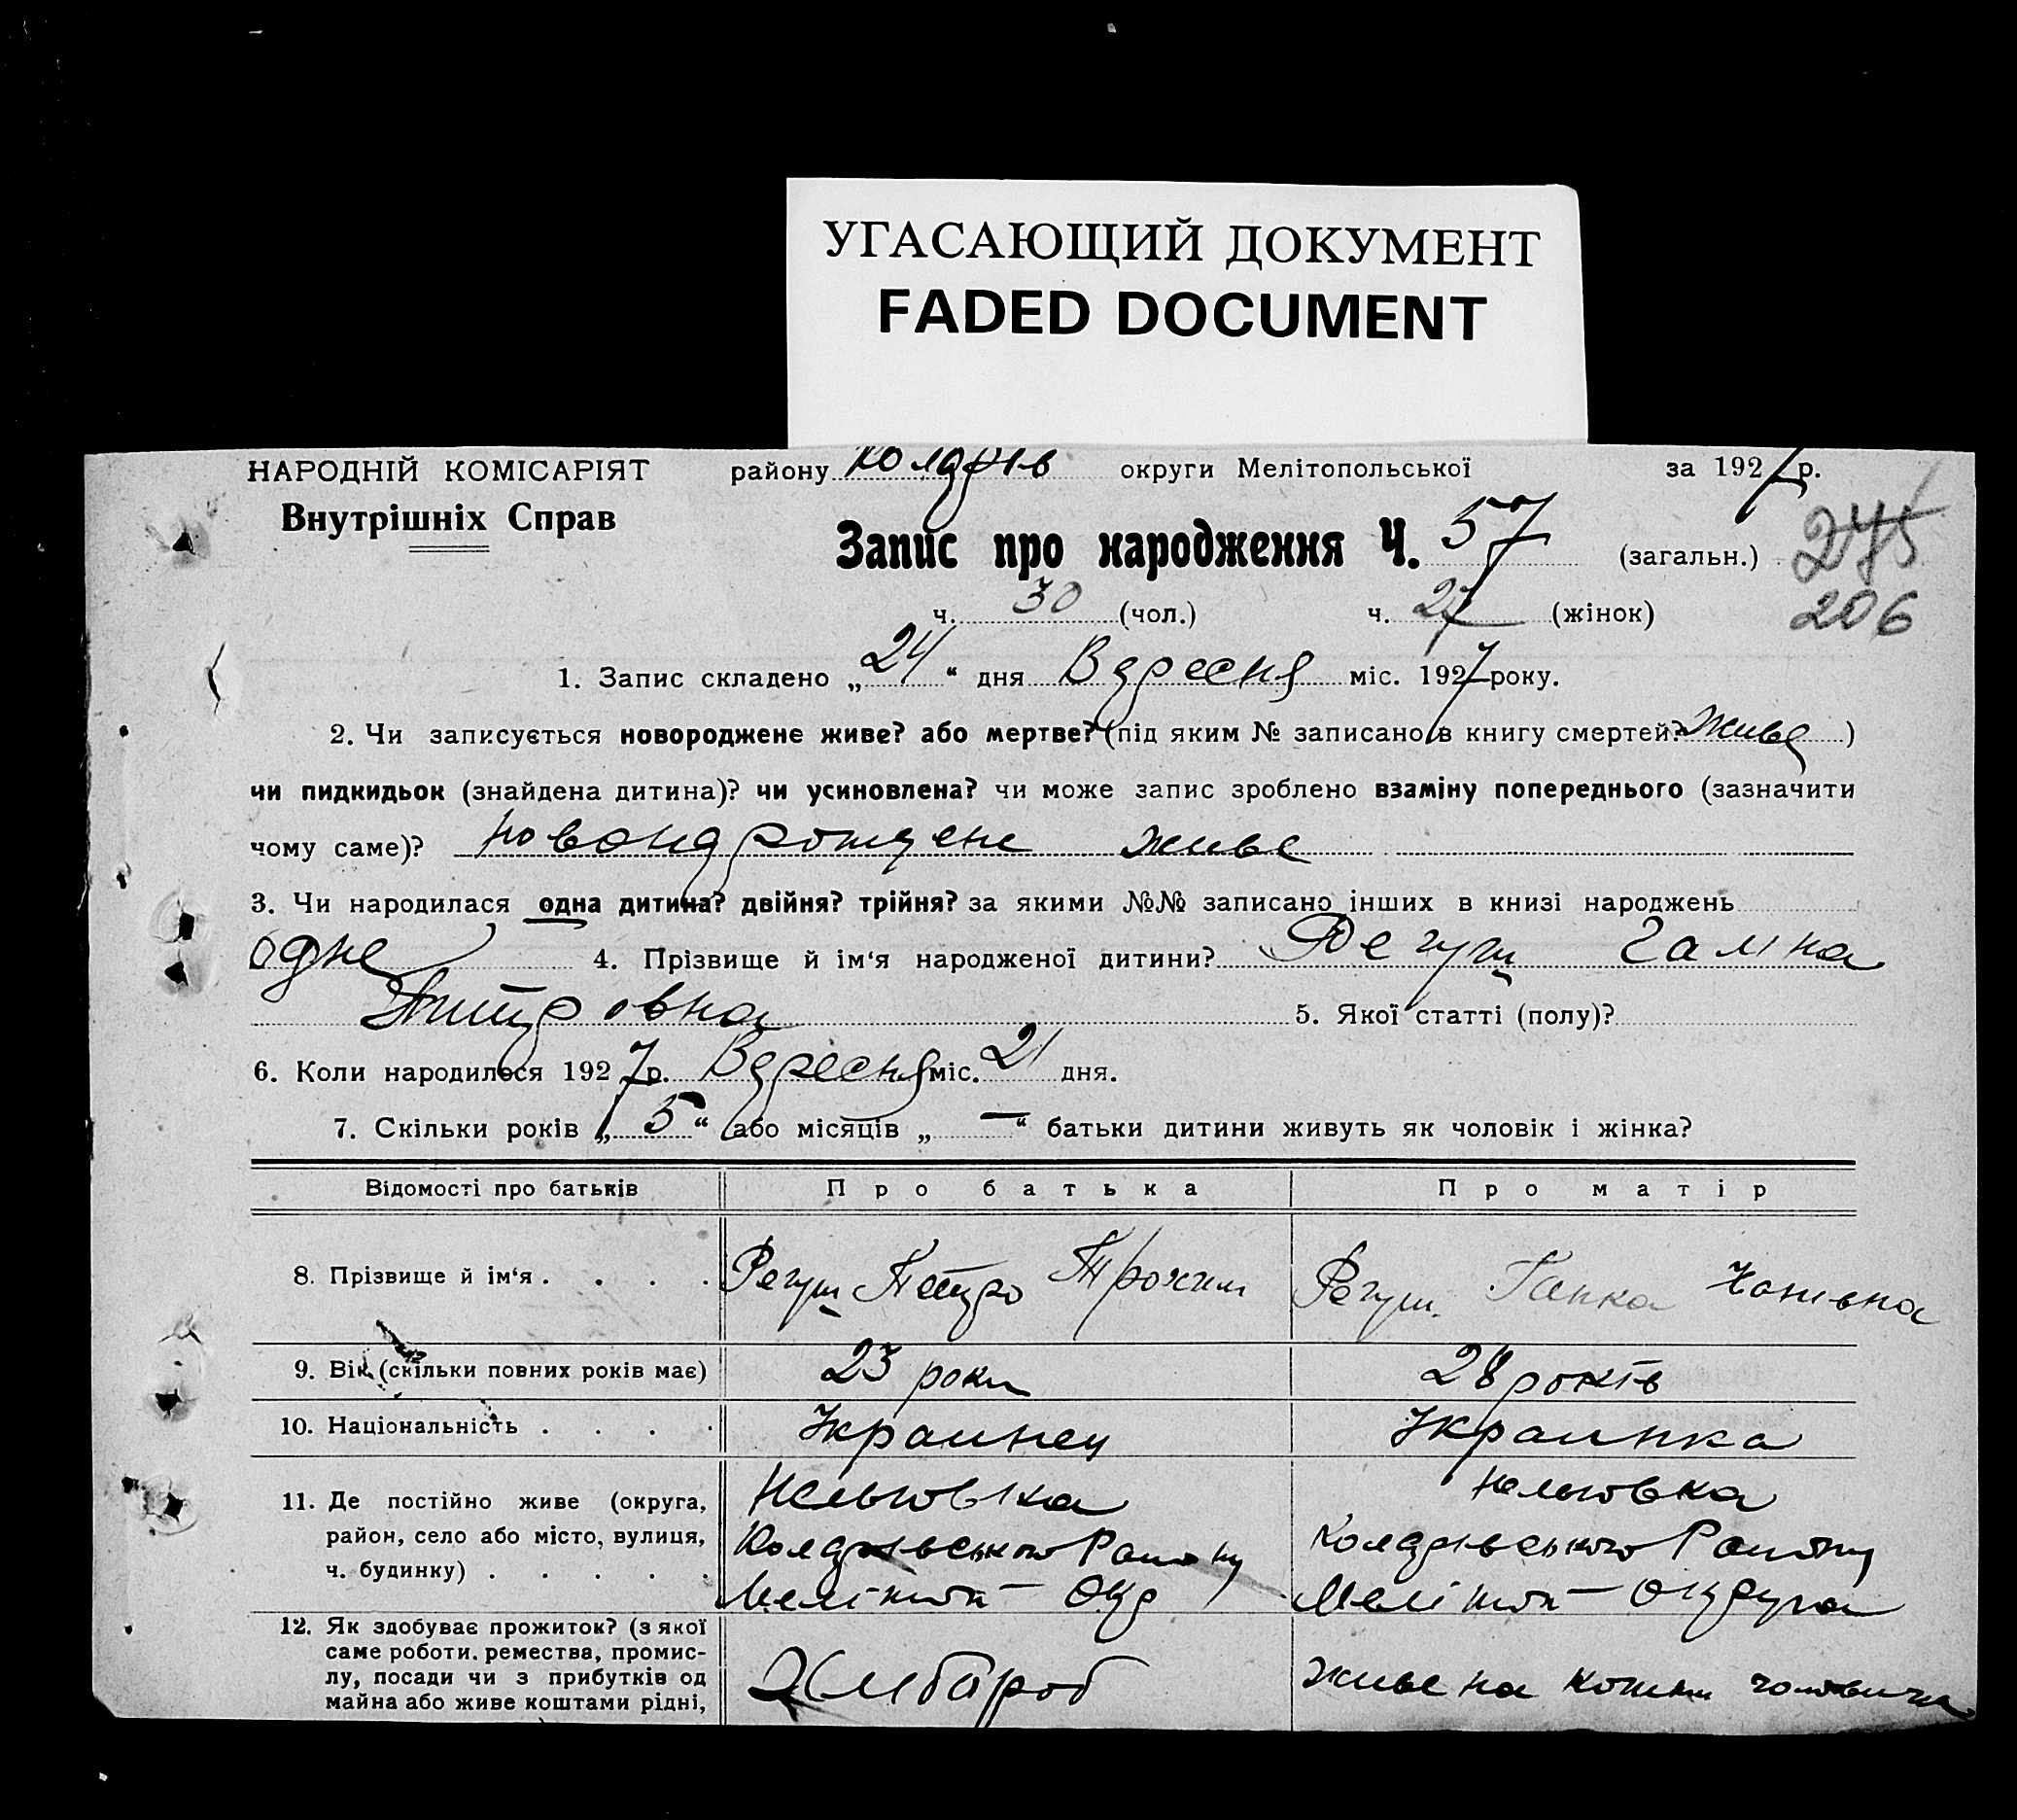 УГАСАЮЩИЙ ДОКУМЕНТ
FADED DOCUMENT
НАРОДНІЙ КОМІСАРІЯТ району округи Мелітопольської за 1927 р.
Внутрішніх Справ
Запис про народження Ч. 57 (загальн.) 275
ч. 30 (чол.) ч. 27 (жінок) 206
1. Запис складено „24“ дня Вересня міс. 1927 року.
2. Чи записується новороджене живе? або мертве? (під яким № записано в книгу смертей? живе)
чи пидкидьок (знайдена дитина)? чи усиновлена? чи може запис зроблено взаміну попереднього (зазначити
чому саме)? живе
3. Чи народилася одна дитина? двійня? трійня? за якими №№ записано інших в книзі народжень
одне 4. Прізвище й ім‘я народженої дитини? Регуш Галина
5. Якої статті (полу)?
6. Коли народилося 1927 р. Вересня міс. 21 дня.
7. Скільки років „5“ або місяців „—“ батьки дитини живуть як чоловік і жінка?
Відомості про батьків Про батька Про матір
8. Прізвище й ім‘я . . . . Регуш Петро Трохим Регуш Ганна
9. Вік (скільки повних років має) 23 роки 28 років
10. Національність . . . . Украинец Украинка
11. Де постійно живе (округа,
район, село або місто, вулиця,
ч. будинку) . . . . .
12. Як здобуває прожиток? (з якої
саме роботи, ремества, промис-
лу, посади чи з прибутків од Хлібороб живе на кошти
майна або живе коштами рідні,